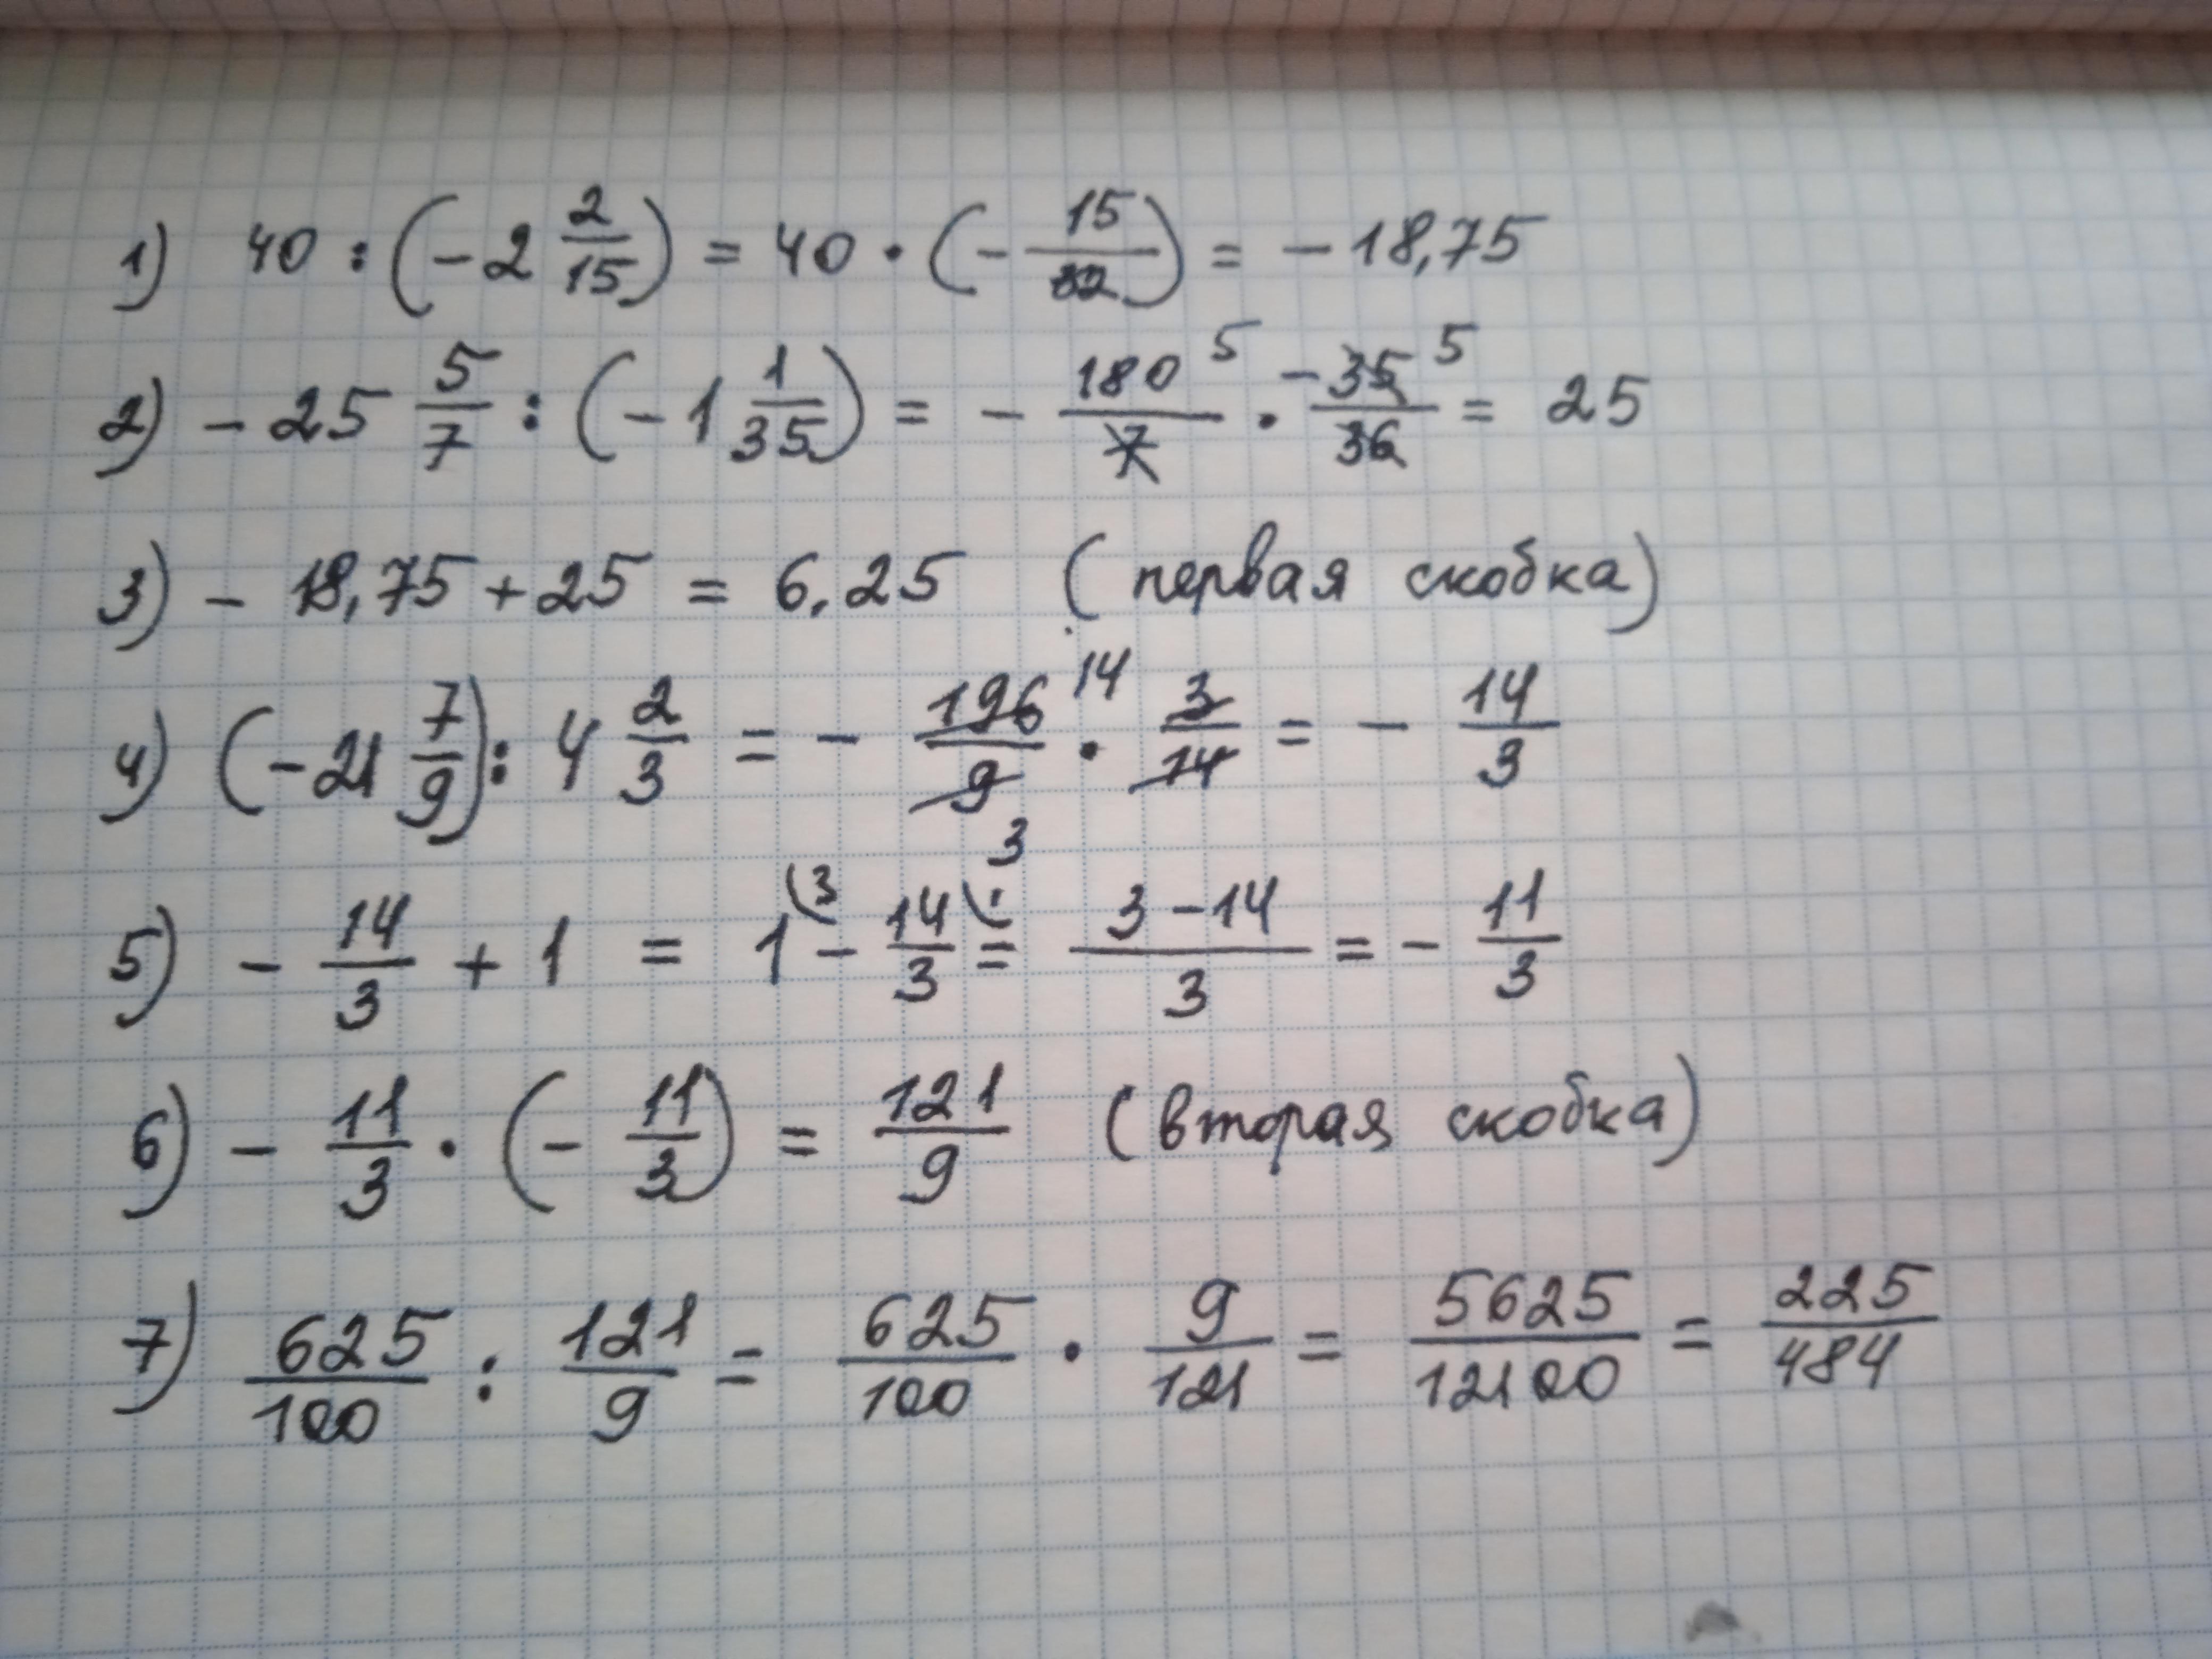 1) 40 : (-2 2/15) = 40 · (- 15/32) = - 18,75
2) - 25 5/7 : (-1 1/35) = - 180/7 5 · -35/36 5 = 25
3) - 18,75 + 25 = 6,25 (первая скобка)
4) (-21 7/9) : 4 2/3 = - 196/9 14 3 · 3/14 = - 14/3
5) - 14/3 + 1 = 1 (3 - 14/3 (1 = 3-14/3 = - 11/3
6) - 11/3 · (- 11/3) = 121/9 (вторая скобка)
7) 625/100 : 121/9 = 625/100 · 9/121 = 5625/12100 = 225/484